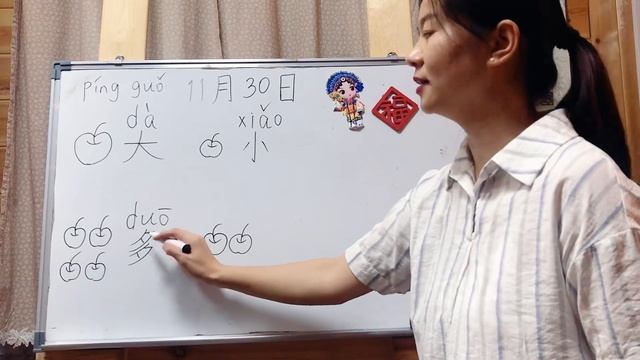 píng guǒ 11月30日
dà xiǎo
大 小
福
duō
多